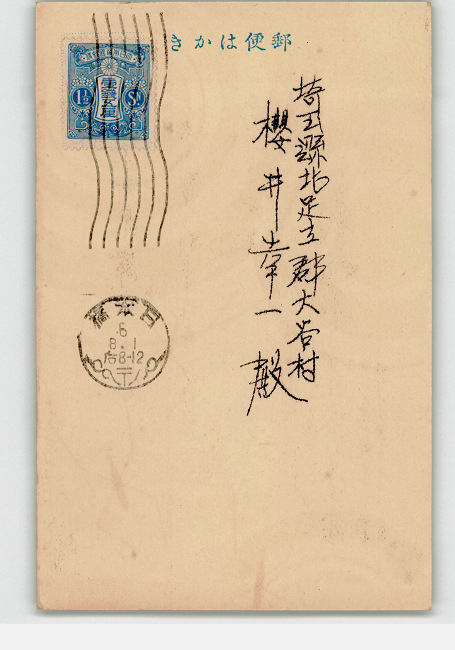 郵便はかき
埼玉縣北足立郡大谷村
櫻井幸一殿
壹錢五厘
1½ Sn
日本橋
6
8.1
后8-12